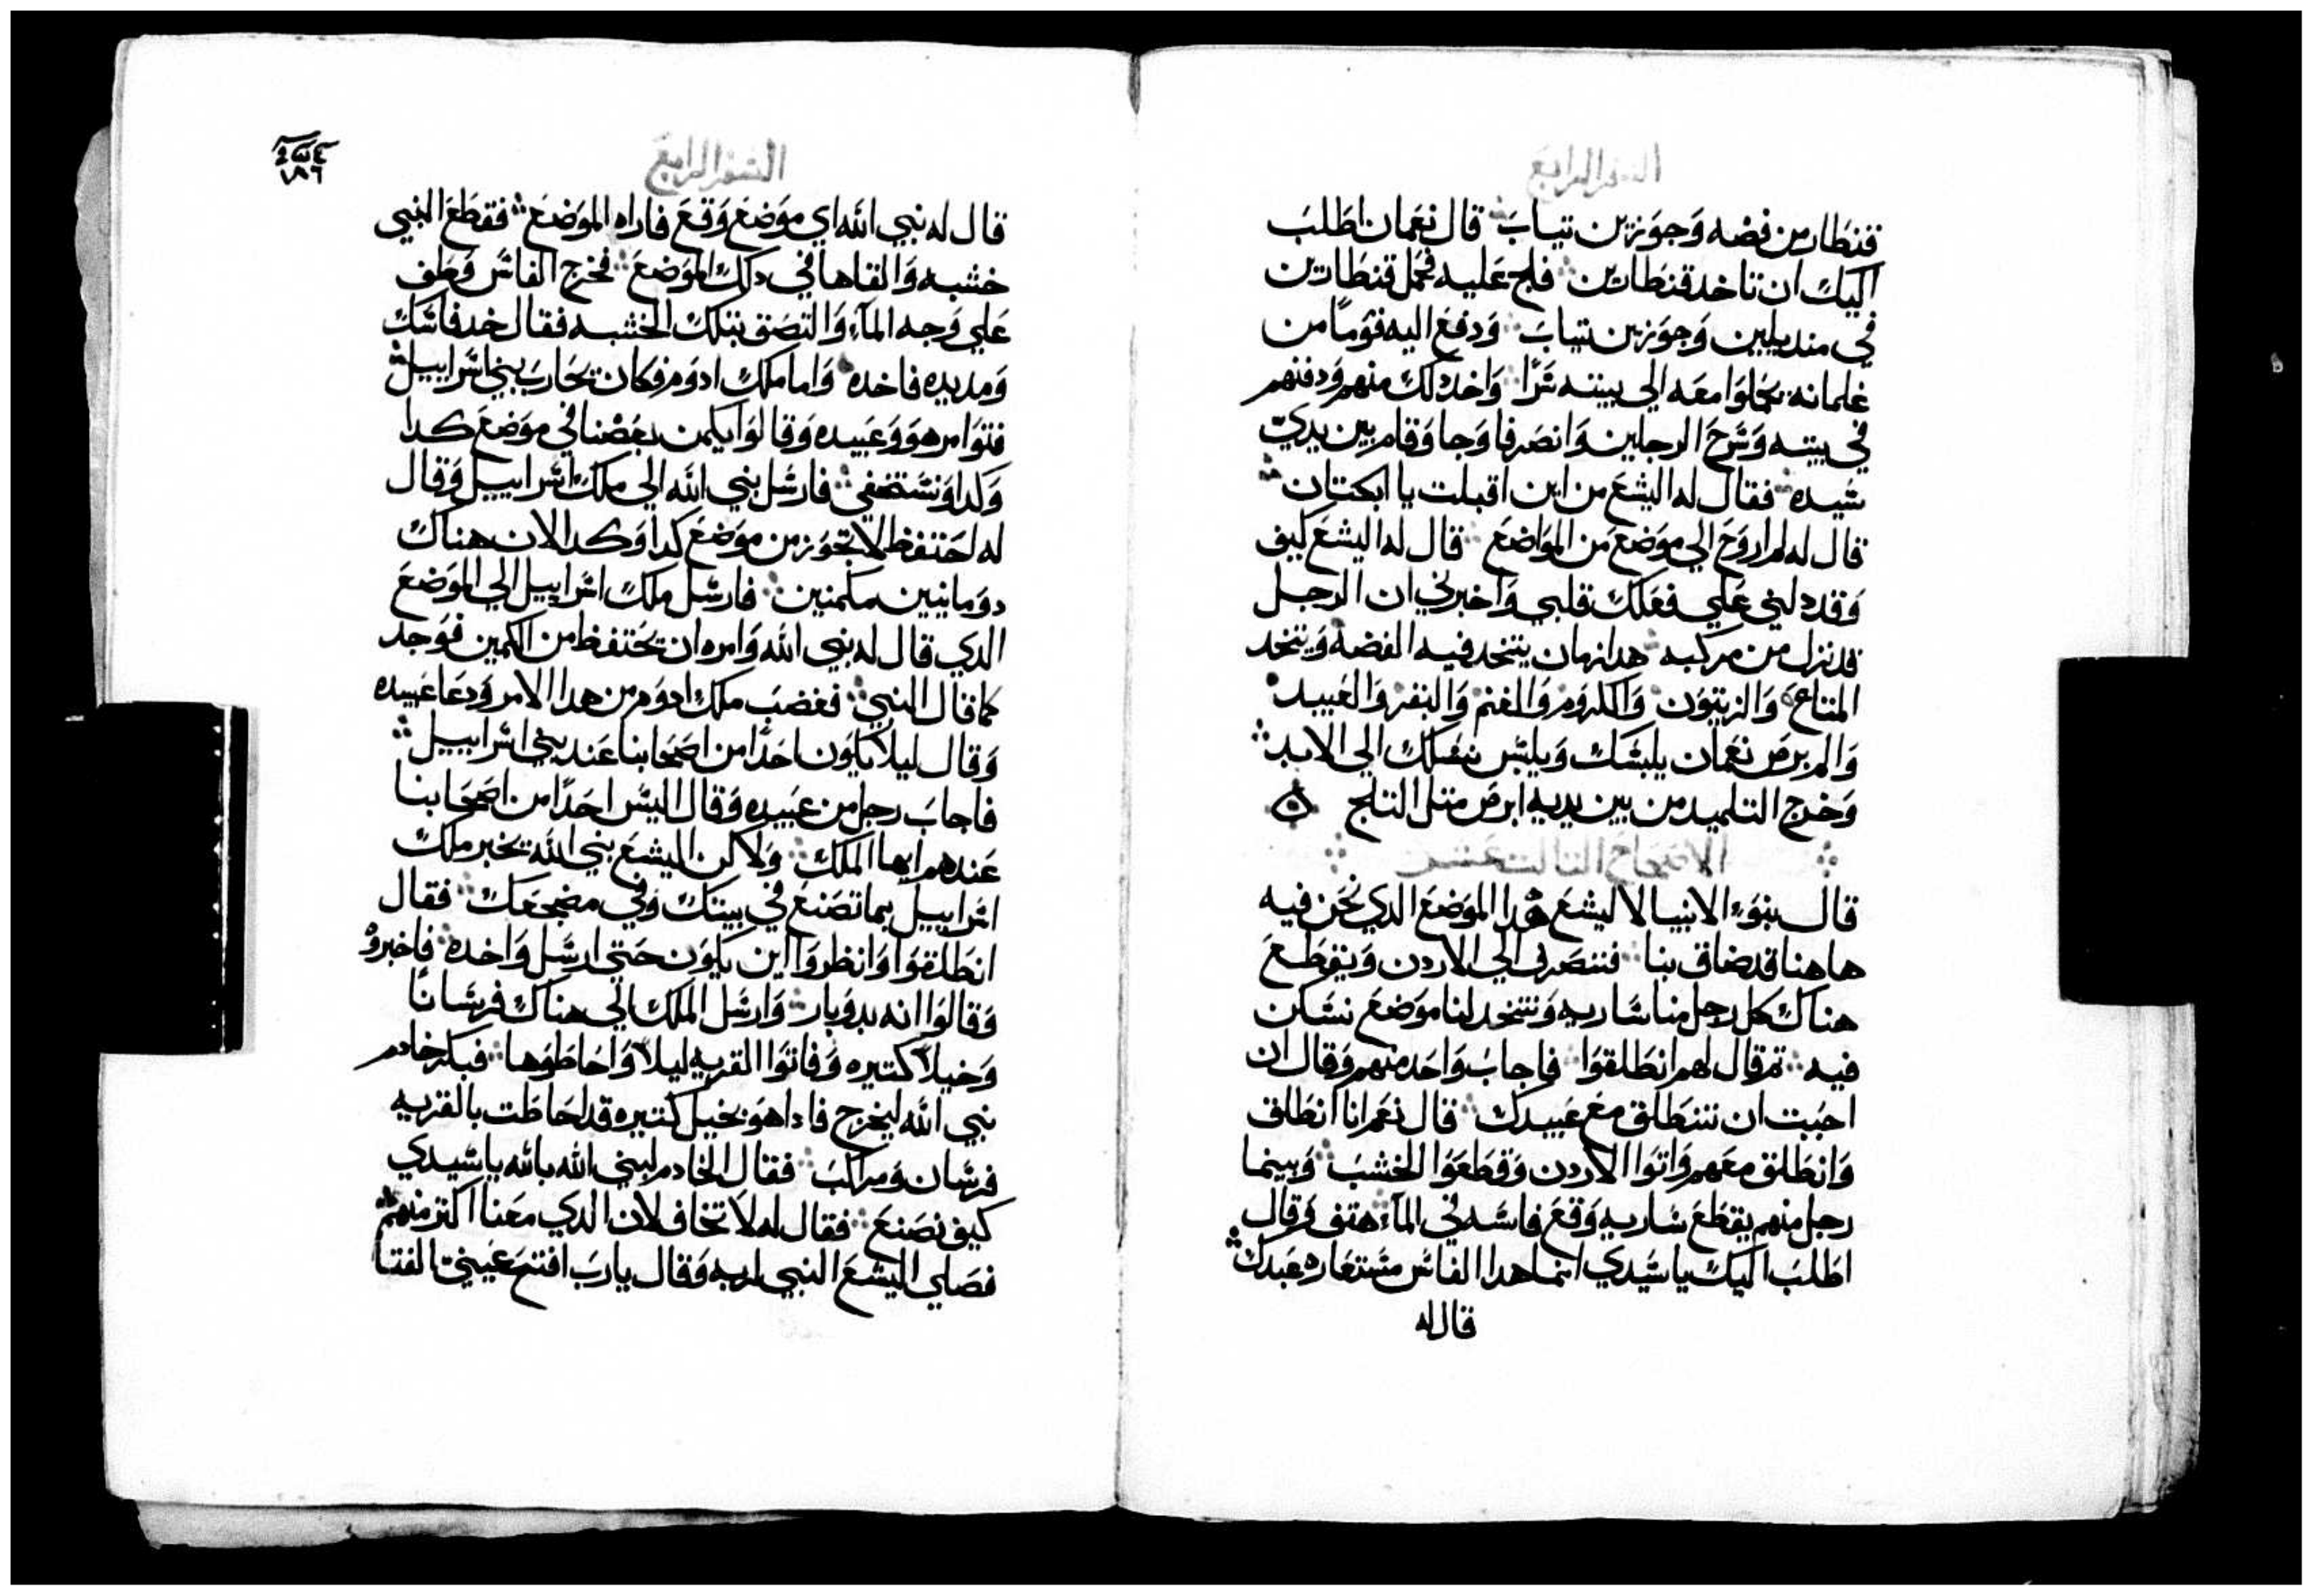 السفر الرابع
قنطار من فضه وجوزين تياب قال نعمان اطلب
اليك ان تاخد قنطارين فلج عليه فحمل قنطارين
في منديلين وجوزين تياب ودفع اليه قومًا من
غلمانه يحملوا معه الي بيته سرًا واخد دلك منهم ودفنهم
في بيته وسرح الرجلين وانصرفا وجا وقام بين يدي
سيده فقال له اليشع من اين اقبلت يا
قال له لم اروح الي موضع من المواضع قال له اليشع كيف
وقد دلني علي فعلك قلبي واخبرني ان الرجل
قد نزل من مركبه هدا زمان يتخد فيه الفضه ويتخد
المتاع والزيتون والكروم والغنم والبقر والعبيد
والبرص نعمان يلبسك ويلبس نسلك الي الابد
وخرج التلميد من بين يديه ابرص متل التلج ه
الاصحاح الثالت عشر
قال بنوء الانبيا لاليشع هدا الموضع الدي نحن فيه
هاهنا قد ضاق بنا فننصرف الي الاردن ويقطع
هناك كل رجل منا ساريه ونتخد لنا موضع نسكن
فيه تم قال لهم انطلقوا فاجاب واحد منهم وقال ان
احببت ان تنطلق مع عبيدك قال نعم انا انطلق
وانطلق معهم واتوا الاردن وقطعوا الخشب وبينما
رجل منهم يقطع ساريه وقع فاسه في المآء هتف وقال
اطلب اليك يا سيدي انما هدا الفاس مستعاره عبدك
قال له
٤
١٨٦
السفر الرابع
قال له نبي الله اي موضع وقع فاراه الموضع فقطع النبي
خشبه والقاها في دلك الموضع فخرج الفاس وطف
علي وجه المآء والتصق بتلك الخشبه فقال خد فاسك
ومد يده فاخده واما ملك ادوم فكان يحارب بني اسراييل
فتوامر هو وعبيده وقالوا يكمن بعضنا في موضع كدا
وكدا ونستخفي فارسل نبي الله الي ملك اسراييل وقال
له احتفظ لا تجوز من موضع كدا وكدا لان هناك
دومانيين مكمنين فارسل ملك اسراييل الي الموضع
الدي قال له نبي الله وامره ان يحتفظ من الكمين فوجد
كما قال النبي فغضب ملك ادوم من هدا الامر ودعا عبيده
وقال ليلا يكون احدًا من اصحابنا عند بني اسراييل
فاجاب رجل من عبيده وقال اليس احدًا من اصحابنا
عندهم ايها الملك ولاكن اليشع نبي الله يخبر ملك
اسراييل بما تصنع في بيتك وفي مضجعك فقال
انطلقوا وانظروا اين يكون حتي ارسل واخده فاخبروه
وقالوا انه بدوبار وارسل الملك الي هناك فرسانًا
وخيلًا كتيره وفاتوا القريه ليلًا واحاطوها فبكر خادم
نبي الله ليخرج فادا هو بخيل كتيره قد احاطت بالقريه
فرسان ومراكب فقال الخادم لنبي الله بالله يا سيدي
كيف نصنع فقال له لا تخاف لان الدي معنا اكتر منهم
فصلي اليشع النبي لربه وقال يا رب افتح عيني الفتا